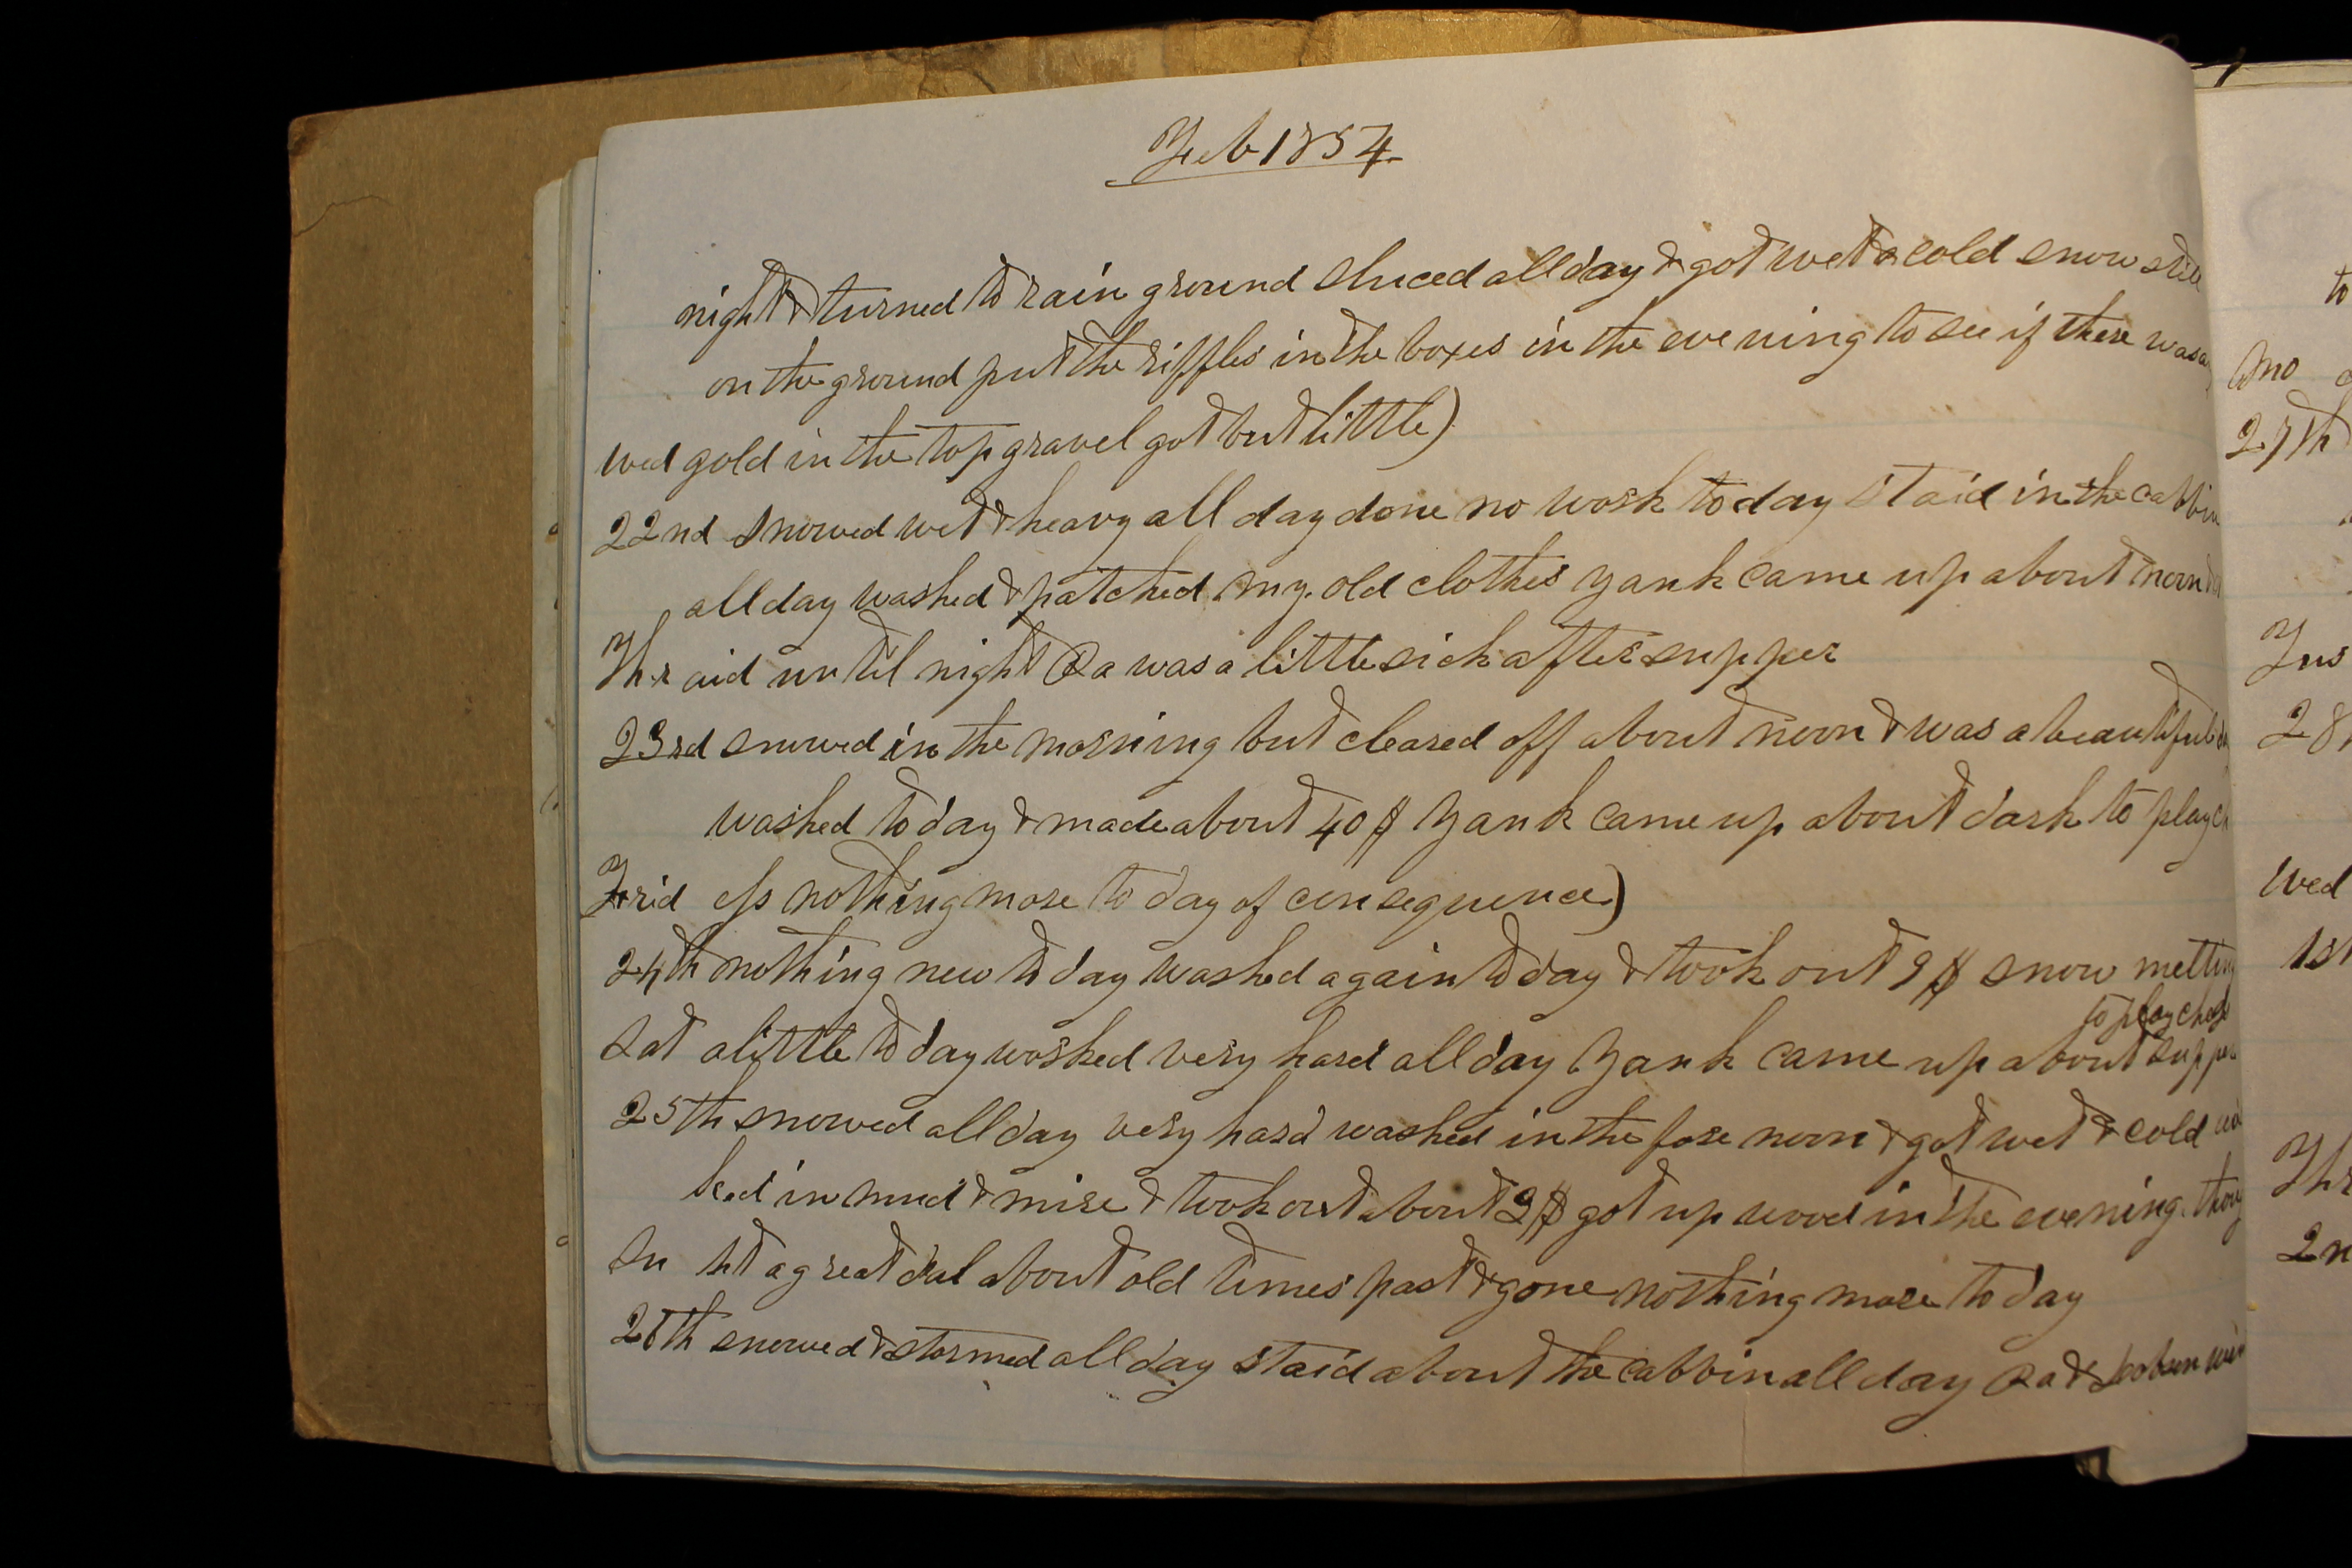 Feb 1854
night & turned to rain ground sluced all day & got wet & cold snow still
on the ground put the riffles in the boxes in the evening to see if there was
wed gold in the top gravel got but little)
22nd snowed wet & heavy all day done no work to day staid in the cabbin
all day washed & patched my old clothes Yank came up about noon
Thr aid until night Pa was a little sick after supper
23rd snowed in the morning but cleared off about noon & was a beautiful
washed to day & made about 40 $ Yank came up about dark to play
Frid ess nothing more to day of consequence)
24th nothing new to day washed again to day & took out 9 $ snow melting
to play chess
Sat a little to day worked very hard all day Yank came up about supper
25th snowed all day very hard washed in the fore noon & got wet & cold
ked in mud & mire & took out about 9 $ got up wood in the evening thoug
Su ht a great deal about old times past & gone nothing more to day
26th snowed & stormed all day staid about the cabbin all day Pa &
to
Mo
27th
Tus
28
Wed
1st
Thr
2n